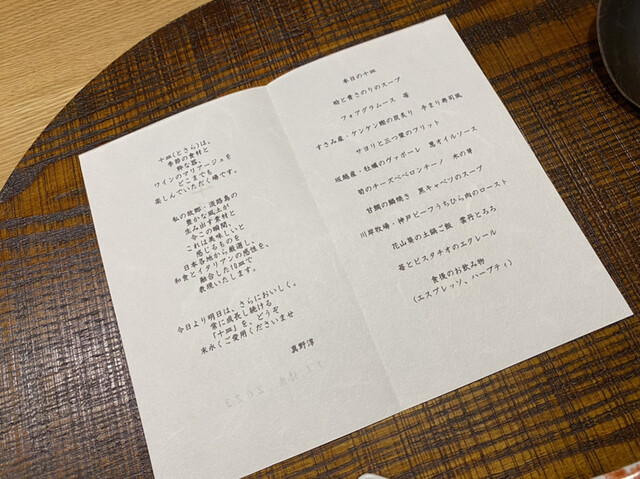 十皿(とさら)は、
季節の食材と
粋な器、
ワインのマリアージュを
どこまでも
楽しんでいただく場です。
私の故郷・淡路島の
豊かな風土が
生み出す食材と
今この瞬間、
これは美味しいと
感じるものを
日本各地から厳選し、
和食とイタリアンの感性を、
融合した10皿で
表現いたします。
今日より明日は、さらにおいしく。
常に成長し続ける
「十皿」を、どうぞ
末永くご愛用くださいませ
真野淳
本日の十皿
蛤と青さのりのスープ
フォアグラムース 苺
すさみ産・ケンケン鰹の炭炙り 手まり寿司風
サヨリと三つ葉のフリット
坂越産・牡蠣のヴァポーレ 葱オイルソース
筍のチーズペペロンチーノ 木の芽
甘鯛の鱗焼き 黒キャベツのスープ
川岸牧場・神戸ビーフうちひら肉のロースト
花山椒の土鍋ご飯 雲丹とろろ
苺とピスタチオのエクレール
食後のお飲み物
(エスプレッソ、ハーブティ)